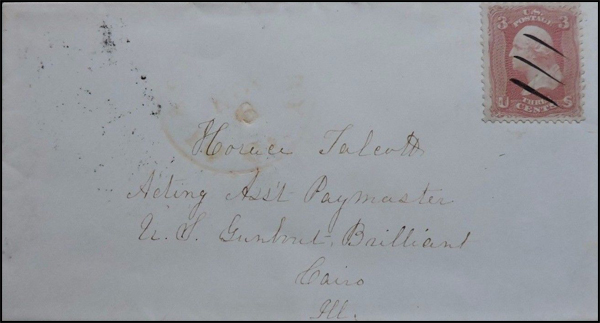 3 U.S. 3
POSTAGE
THREE
U CENTS S
Horace Talcott
Acting Ass't Paymaster
U. S. Gunboat Brilliant
Cairo
Ill.